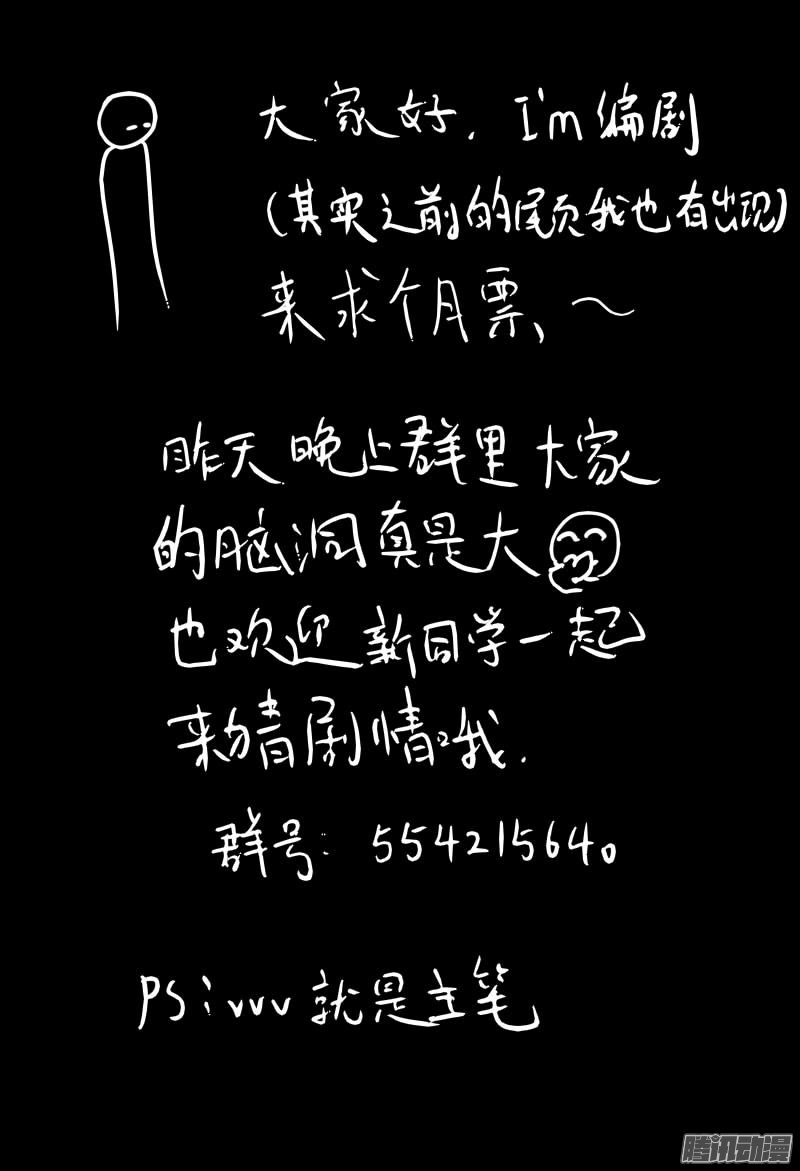 大家好，I'm编剧
（其实之前的尾页我也有出现）
来求个月票、～
昨天晚上群里大家
的脑洞真是大
也欢迎新同学一起
来猜剧情哦．
群号：554215640。
PS：vvv就是主笔
腾讯动漫